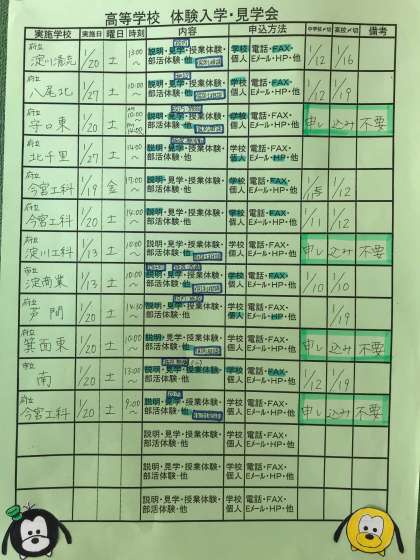 高等学校 体験入学・見学会
実施学校 実施日 曜日 時刻 内容 申込方法 中学校〆切 高校〆切 備考
府立 淀川清流 1/20 土 13:00~ 説明・見学・授業体験・部活体験・他 学校 個人 電話・FAX・Eメール・HP・他 1/12 1/16
府立 八尾北 1/27 土 10:00~ 説明・見学・授業体験・部活体験・他 学校 個人 電話・FAX・Eメール・HP・他 1/12 1/19
府立 守口東 1/20 土 説明・見学・授業体験・部活体験・他 学校 個人 電話・FAX・Eメール・HP・他 申し込み不要
府立 北千里 1/27 土 14:00~ 説明・見学・授業体験・部活体験・他 学校 個人 電話・FAX・Eメール・HP・他
府立 今宮工科 1/19 金 説明・見学・授業体験・部活体験・他 学校 個人 電話・FAX・Eメール・HP・他 1/15 1/12
府立 今宮工科 1/20 土 14:00~ 説明・見学・授業体験・部活体験・他 学校 個人 電話・FAX・Eメール・HP・他 1/11 1/12
府立 淀川工科 1/13 土 10:00~ 説明・見学・授業体験・部活体験・他 学校 個人 電話・FAX・Eメール・HP・他 申し込み不要
淀商業 1/13 土 10:00~ 説明・見学・授業体験・部活体験・他 学校 個人 電話・FAX・Eメール・HP・他 1/10 1/10
府立 芦間 1/20 土 14:30~ 説明・見学・授業体験・部活体験・他 学校 個人 電話・FAX・Eメール・HP・他 1/19
府立 箕面東 1/20 土 10:00~ 説明・見学・授業体験・部活体験・他 学校 個人 電話・FAX・Eメール・HP・他 申し込み不要
市立 南 1/20 土 13:00~ 説明・見学・授業体験・部活体験・他 学校 個人 電話・FAX・Eメール・HP・他 1/12 1/19
府立 今宮工科 1/20 土 9:00~ 説明・見学・授業体験・部活体験・他 学校 個人 電話・FAX・Eメール・HP・他 申し込み不要
説明・見学・授業体験・部活体験・他 学校 個人 電話・FAX・Eメール・HP・他
説明・見学・授業体験・部活体験・他 学校 個人 電話・FAX・Eメール・HP・他
説明・見学・授業体験・部活体験・他 学校 個人 電話・FAX・Eメール・HP・他